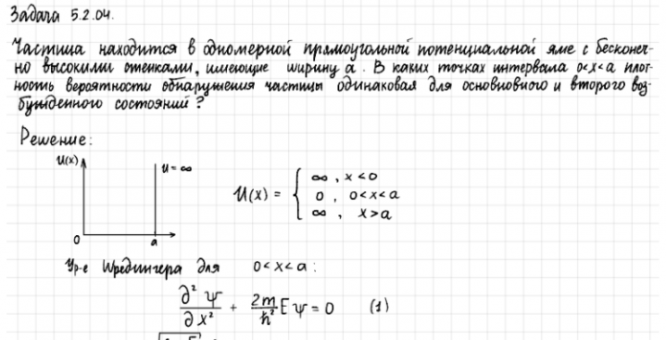 Задача 5.2.04.
Частица находится в одномерной прямоугольной потенциальной яме с бесконеч-
но высокими стенками, имеющие ширину a. В каких точках интервала 0<x<a плот-
ность вероятности обнаружения частицы одинаковая для основновного и второго воз-
бужденного состояний?
Решение:
U(x) U=∞
U(x) = { ∞, x<0
0, 0<x<a
∞, x>a
0 a
Ур-е Шредингера для 0<x<a:
∂²ψ/∂x² + 2m/ħ² Eψ = 0 (1)